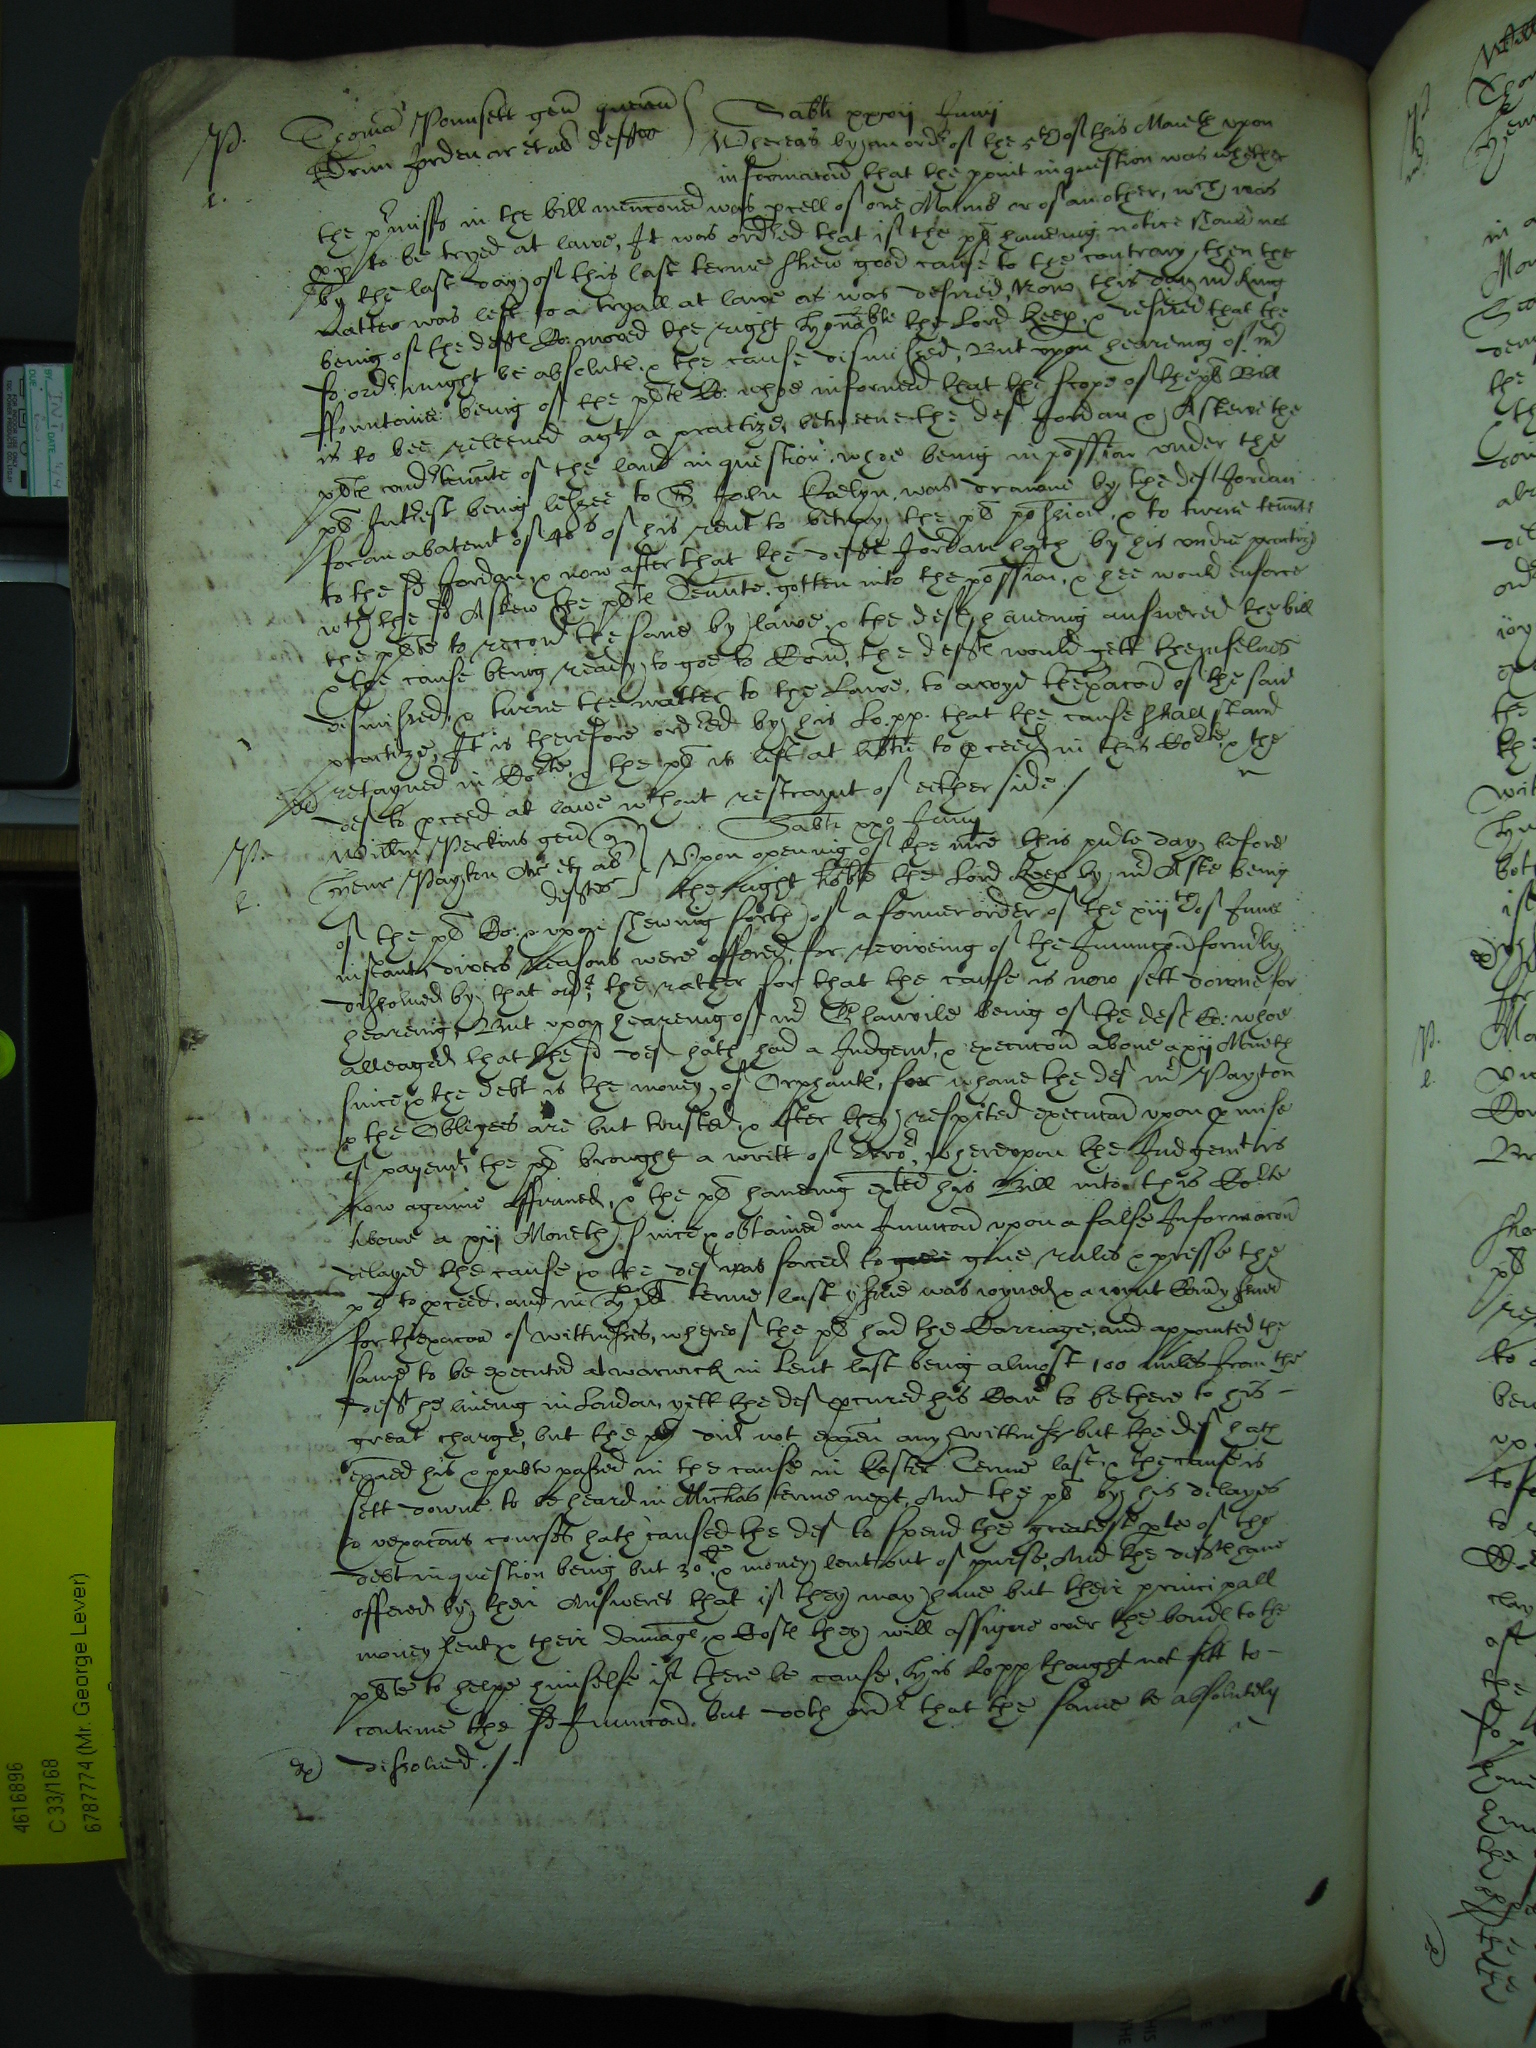 P. Thomas Pounsett gen quer
Sabti xxvij Junij
l. Jorden ar et al deftes
Whereas by an order of the 5th of this Moneth vpon
informacon that the point in question was whether
the pmisss in the bill menconed was pcell of one Mannor or of an other, wch was
pp to be tryed at lawe, It was ordred that if the plt haueing notice should not
by the last day of this last terme shew good cause to the contrary, then the
matter was left to a tryall at lawe as was desired, Now this day mr King
being of the deftes Co: moved the right honorable the Lord Keep & desired that the
sd order might be absolute & the cause dismissed, But vpon heareing of mr
ffountaine being of the pltes Co: whoe informed that the scope of the plts Bill
is to bee releeued agt a practize betweene the def Jordan & Askewe the
pltes vndertennte of the land in question, whoe being in possion vnder the
plts Interest being lessee to Sr John Evelyn was drawne by the def Jordan
for an abatemt of 40s of his rent to betray the plts possession, & to turne tennt
to the sd Jordan & now after that the deft Jordan hath by his vndue practize
wth the sd Askew the pltes Tennte, gotten into the possion, & hee would enforce
the plte to recouer the same by lawe, & the deft haueing answered the bill
& the cause being ready to goe to Comn, the deftes would gett themselues
dismissed, & turne the matter to the Lawe, to avoyd thexacon of the said
practize, It is therefore ordred by his Lo:pp: that the cause shall stand
retayned in Corte, & the plt is left at libtie to pceed in this Corte, & the
def to pceed at lawe wthout restraynt of either side /
P. Willm Perkins gen q
Sabti xxo Junij
l. Henr Payton Ar et al
deftes
Vpon opening of the mre this pnte day before
the right hoble the Lord Keep by mr Aske being
of the plt Co: & vpon shewing forth of a former order of the xiijth of June
instant, divers reasons were offered, for reviveing of the Iniuncon formrly
dissolved by that ordr, the rather for that the cause is now sett downe for
heareing, But vpon heareing of mr Glanvile being of the def Co: whoe
alleaged that the sd def hath had a Judgemt & execucon aboue a xij Moneth
since & the debt is the money of Orphants, for whome the def mr Payton
& the Obligees are but trusted, & after they respited execucon vpon pmise
of payemt, the plt brought a writt of Error, wherevpon the Judgemt is
now againe affirmed, & the plt haueing exhted his Bill into this Corte
aboue a xij Moneth since & obtained an Iniuncon vpon a false Informacon
delayed the cause, & the def was forced to giue rules & presse the
plt to pceed, and in terme last yssue was ioyned & a ioynt Comn issued
for thexacon of wittnesses, whereof the plt had the Carriage, and appointed the
same to be executed at warwick in Lent last being almost 100 miles from the
deft he liueing in London, yett the def pcured his Comrs to be there to his
great charge, but the plt did not exaen any wittnesses but the def hath
exaed his & publicon passed in the cause in Easter Terme last & the cause is
sett downe to be heard in Michas terme next, And the plt by his delayes
& vexacous courses hath caused the def to spend the greatest pte of the
debt in question being but 30l & money lent out of purse, And the deftes haue
offered by their Answeres that if they may haue but their principall
money lent & their damage & Costes they will assigne over the bond to the
plte to helpe himselfe if there be cause, his Lopp thought not fitt to
continue the sd Iniuncon, but doth order that the same be absolutely
dissolved ./.
4616896
C 33/168
6787774 (Mr. George Lever)